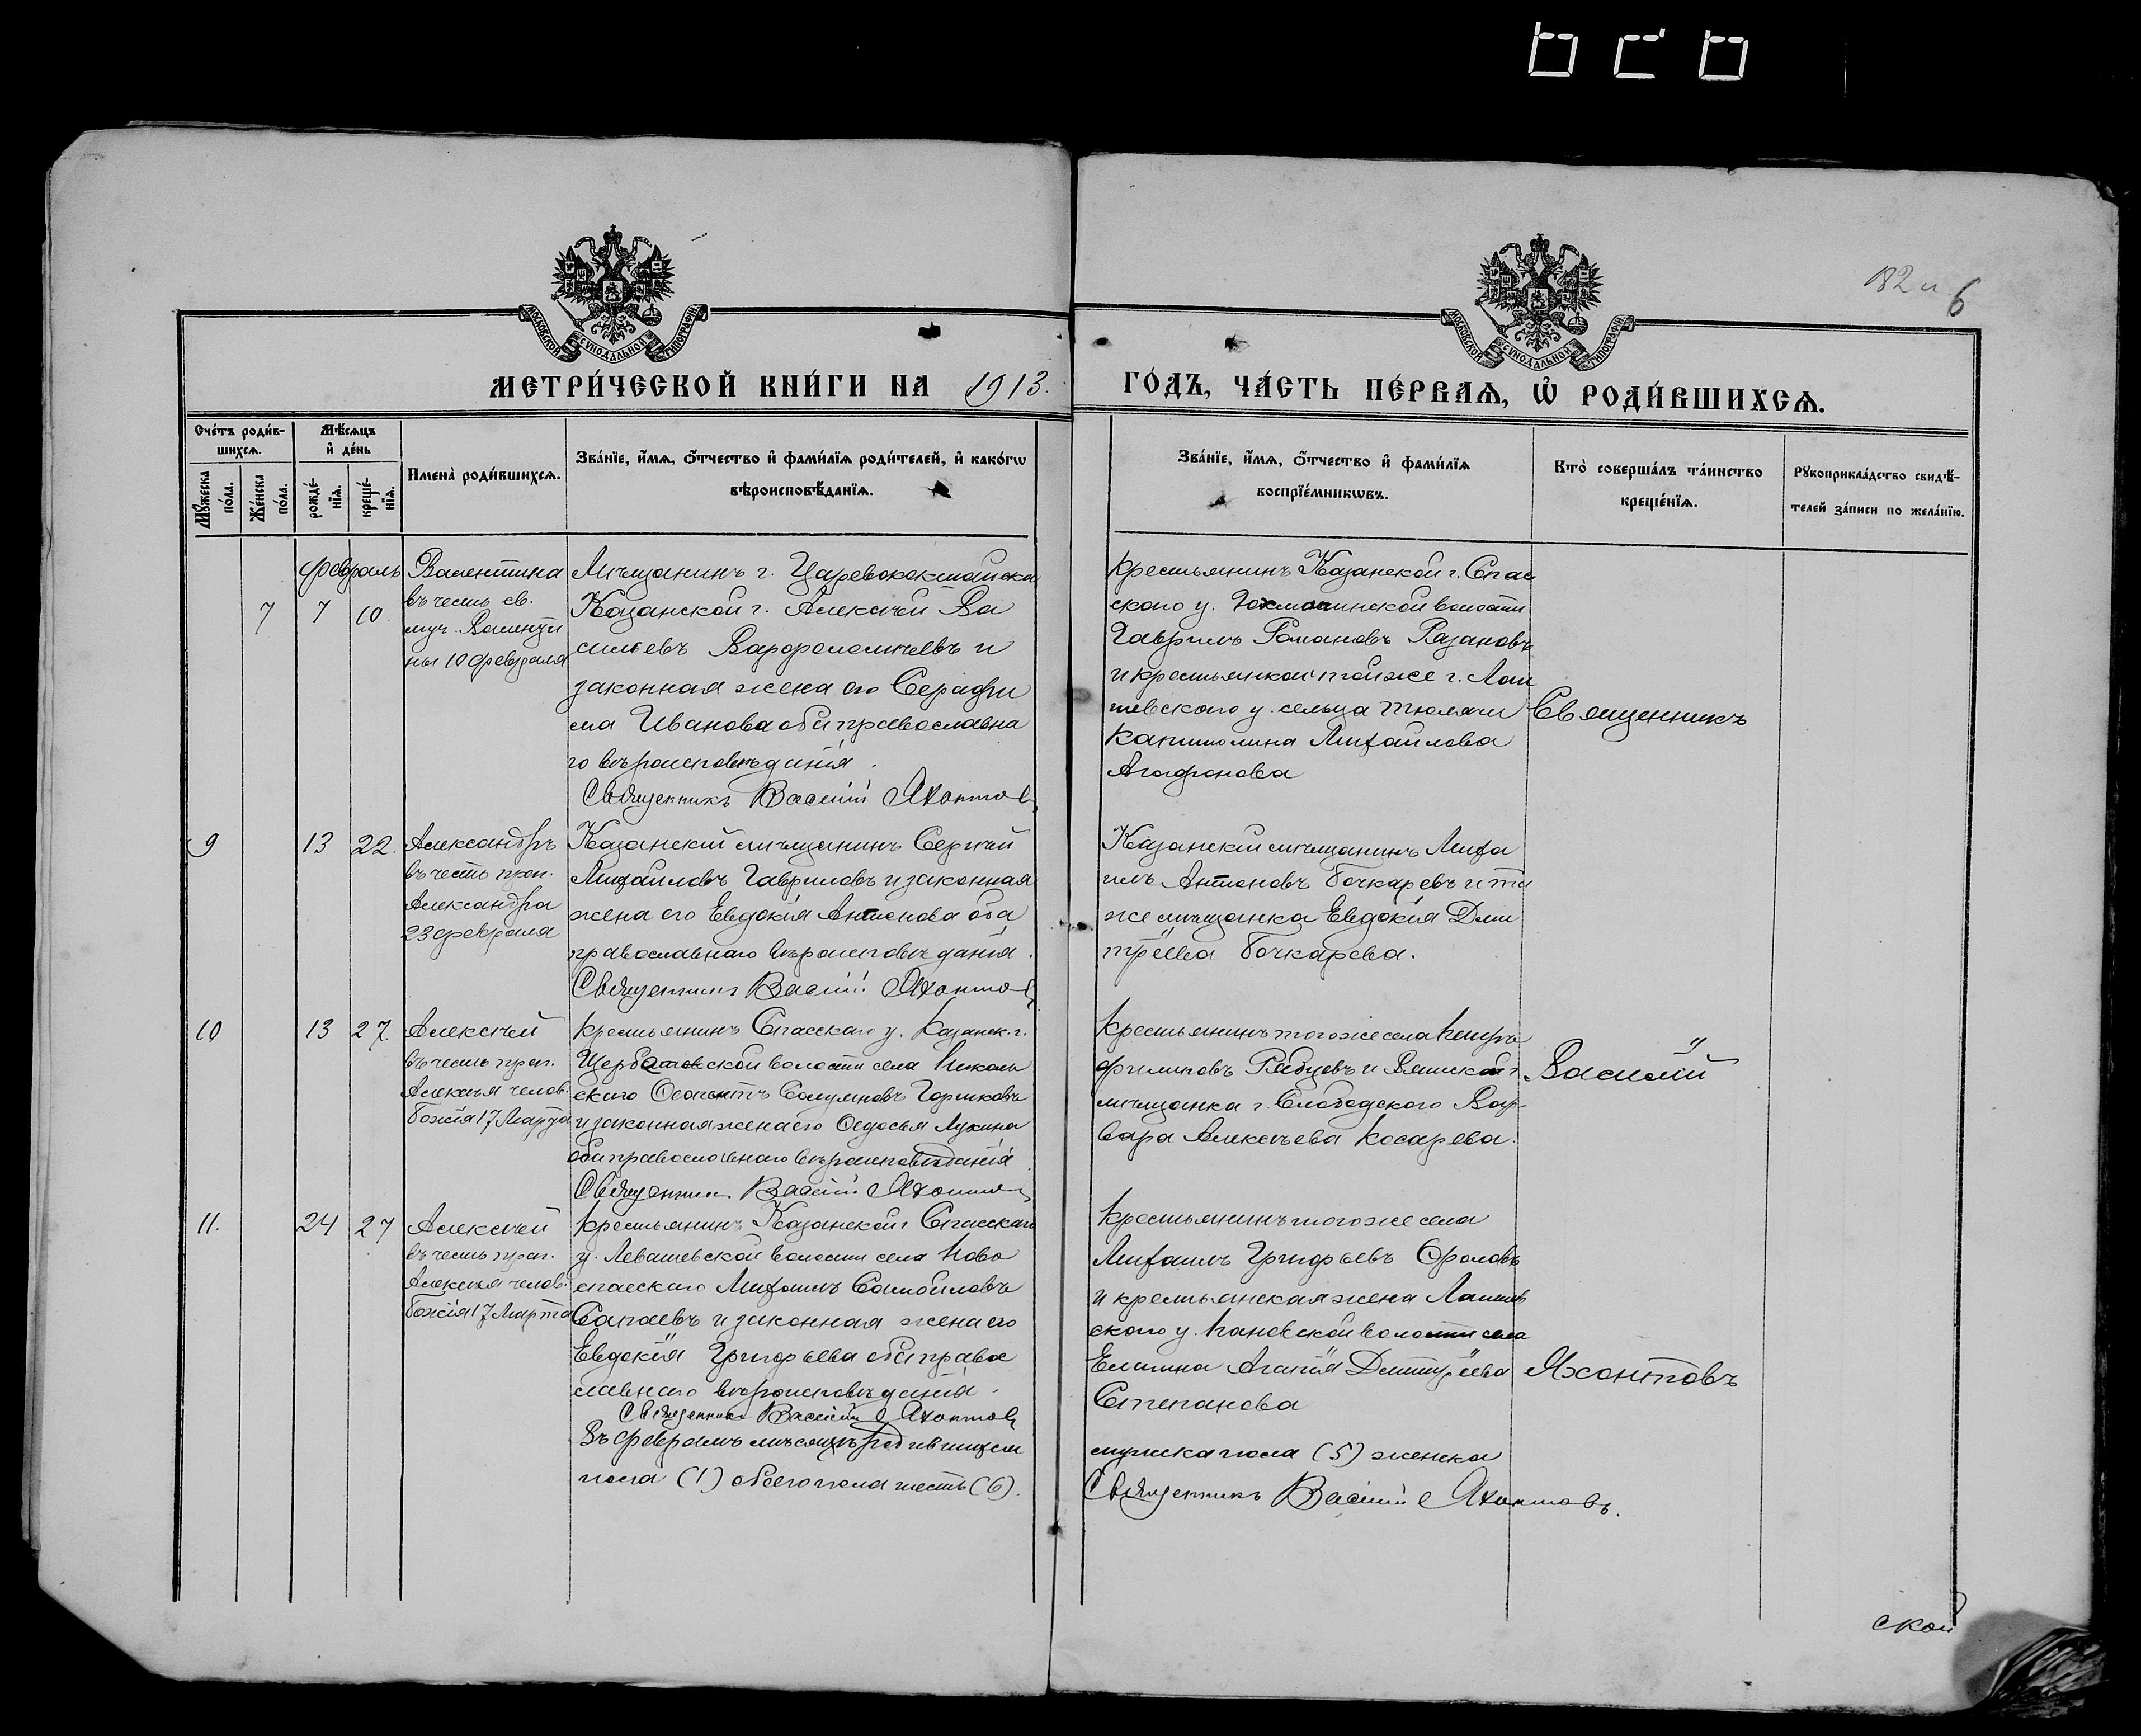 182 и 6
МОСКОВСКОЙ СУНОДАЛЬНОЙ ТИПОГРАФІИ
МОСКОВСКОЙ СУНОДАЛЬНОЙ ТИПОГРАФІИ
МЕТРИ́ЧЕСКОЙ КНИ́ГИ НА 1913. ГО́ДЪ, ЧА́СТЬ ПЕ́РВАѦ, Ѽ РОДИ́ВШИХСѦ.
Сче́тъ роди́в-
шихсѧ.
Мꙋ́жеска по́ла.
Же́нска по́ла.
Мѣ́сѧцъ
и҆ де́нь
рожде́-
нїѧ.
креще́-
нїѧ.
Имена̀ роди́вшихсѧ.
Зва́нїе, и҆́мѧ, ѻ҆́тчество и҆ фами́лїѧ роди́телей, и҆ како́гѡ
вѣроисповѣ́данїѧ.
Зва́нїе, и҆́мѧ, ѻ҆́тчество и҆ фами́лїѧ
воспрїе́мникѡвъ.
Кто̀ соверша́лъ та́инство
креще́нїѧ.
Рꙋкоприкла́дство свидѣ́-
телей за́писи по жела́нїю.
февраль
7 7 10.
Валентина
въ честь св.
муч. Валенти
ны 10 февраля
Мѣщанинъ г. Царевококшайска
Казанской г. Алексѣй Ва
сильевъ Варфоломеевъ и
законная жена его Серафи
ма Иванова оба православна
го вѣроисповѣданія.
Священникъ Василій Яхонтовъ
крестьянинъ Казанской г. Спас
скаго у. волости
Гавриилъ Романовъ Разановъ
и крестьянка той же г. Лаи
шевскаго у. сельца Тюлячи
Капитолина Михаилова
Агафонова
Священникъ
9 13 22.
Александръ
въ честь преп.
Александра
23 февраля
Казанскій мѣщанинъ Сергѣй
Михаиловъ Гавриловъ и законная
жена его Евдокія Антонова оба
православнаго вѣроисповѣданія.
Священникъ Василій Яхонтовъ
Казанскій мѣщанинъ Миха
илъ Антоновъ Бочкаревъ и та
же мѣщанка Евдокія Дми
тріева Бочкарева.
10 13 27.
Алексѣй
въ честь преп.
Алексѣя челов.
Божія 17 Марта
крестьянинъ Спасскаго у. Казанск. г.
Щербетьевской волости села Николь
скаго Горшковъ
и законная жена его Ѳедосья Лукина
оба православнаго вѣроисповѣданія
Священник Василій Яхонтовъ
крестьянинъ того же села Петръ
Филиповъ Рябцевъ и Вятской г.
мѣщанка г. Слободского Вар-
вара Алексѣева Косарева.
Василій
11. 24 27
Алексѣй
въ честь преп.
Алексѣя челов.
Божія 17 Марта
крестьянинъ Казанской г. Спасскаго
у. Левашевской волости села Ново
спасскаго Михаилъ Самойловъ
Сапаевъ и законная жена его
Евдокія Григорьева оба правос
лавнаго вѣроисповѣданія.
Священникъ Василій Яхонтовъ
крестьянинъ того же села
Михаилъ Григорьевъ Фроловъ
и крестьянская жена Лаишев
скаго у. волости села
Агапія Димитріева
Степанова
Яхонтовъ
Въ февралѣ мѣсяцѣ родившихся
мужска пола (5) женска
пола (1) обоего пола шесть (6).
Священникъ Василій Яхонтовъ.
ской